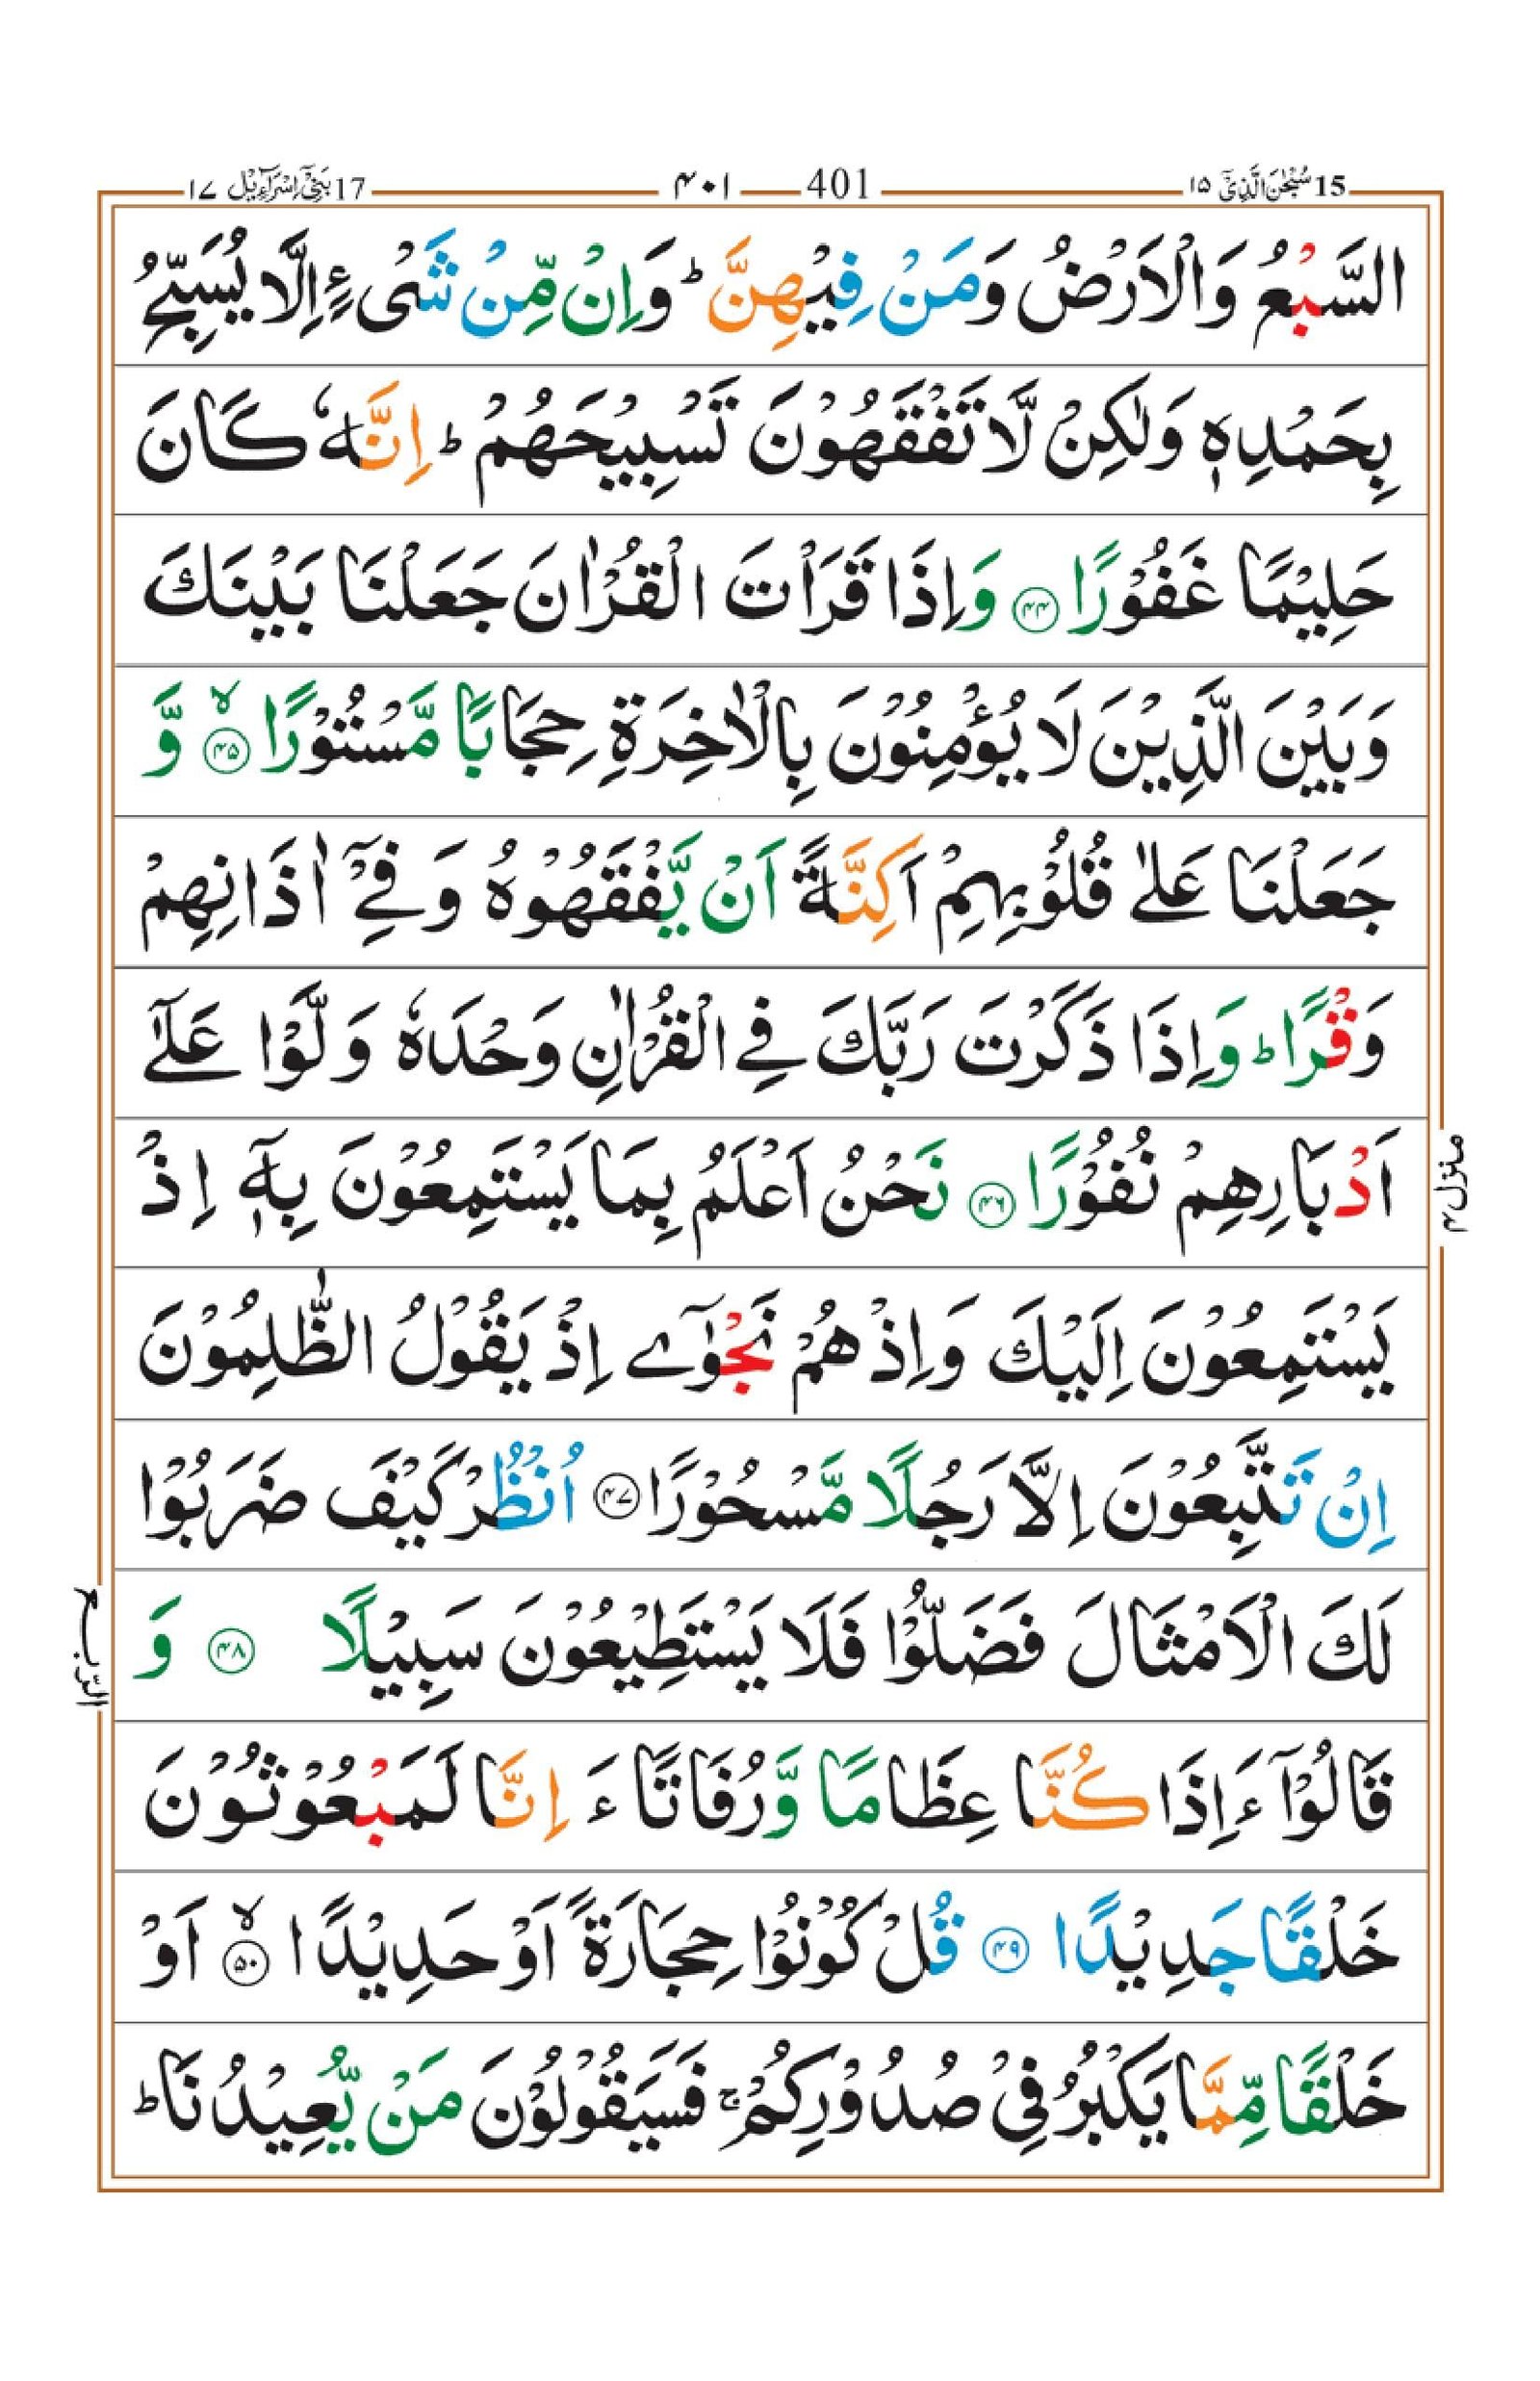 15 سُبْحٰنَ الَّذِيْۤ ١٥ — 401 — ۴۰۱ — 17 بَنِيْۤ اِسْرَآءِيْل ١٧
السَّبْعُ وَالْاَرْضُ وَمَنْ فِيْهِنَّ ؕ وَاِنْ مِّنْ شَیْءٍ اِلَّا يُسَبِّحُ
بِحَمْدِهٖ وَلٰكِنْ لَّا تَفْقَهُوْنَ تَسْبِيْحَهُمْ ؕ اِنَّهٗ كَانَ
حَلِيْمًا غَفُوْرًا ۴۴ وَاِذَا قَرَاْتَ الْقُرْاٰنَ جَعَلْنَا بَيْنَكَ
وَبَيْنَ الَّذِيْنَ لَا يُؤْمِنُوْنَ بِالْاٰخِرَةِ حِجَابًا مَّسْتُوْرًا ۙ ۴۵ وَّ
جَعَلْنَا عَلٰى قُلُوْبِهِمْ اَكِنَّةً اَنْ يَّفْقَهُوْهُ وَفِیْۤ اٰذَانِهِمْ
وَقْرًا ؕ وَاِذَا ذَكَرْتَ رَبَّكَ فِی الْقُرْاٰنِ وَحْدَهٗ وَلَّوْا عَلٰۤى
اَدْبَارِهِمْ نُفُوْرًا ۴۶ نَحْنُ اَعْلَمُ بِمَا يَسْتَمِعُوْنَ بِهٖۤ اِذْ
يَسْتَمِعُوْنَ اِلَيْكَ وَاِذْ هُمْ نَجْوٰۤى اِذْ يَقُوْلُ الظّٰلِمُوْنَ
اِنْ تَتَّبِعُوْنَ اِلَّا رَجُلًا مَّسْحُوْرًا ۴۷ اُنْظُرْ كَيْفَ ضَرَبُوْا
لَكَ الْاَمْثَالَ فَضَلُّوْا فَلَا يَسْتَطِيْعُوْنَ سَبِيْلًا ۴۸ وَ
قَالُوْۤا ءَاِذَا كُنَّا عِظَامًا وَّرُفَاتًا ءَ اِنَّا لَمَبْعُوْثُوْنَ
خَلْقًا جَدِيْدًا ۴۹ قُلْ كُوْنُوْا حِجَارَةً اَوْ حَدِيْدًا ۙ ۵۰ اَوْ
خَلْقًا مِّمَّا يَكْبُرُ فِیْ صُدُوْرِكُمْ ۚ فَسَيَقُوْلُوْنَ مَنْ يُّعِيْدُنَا ؕ
منزل ۴
الرّبع